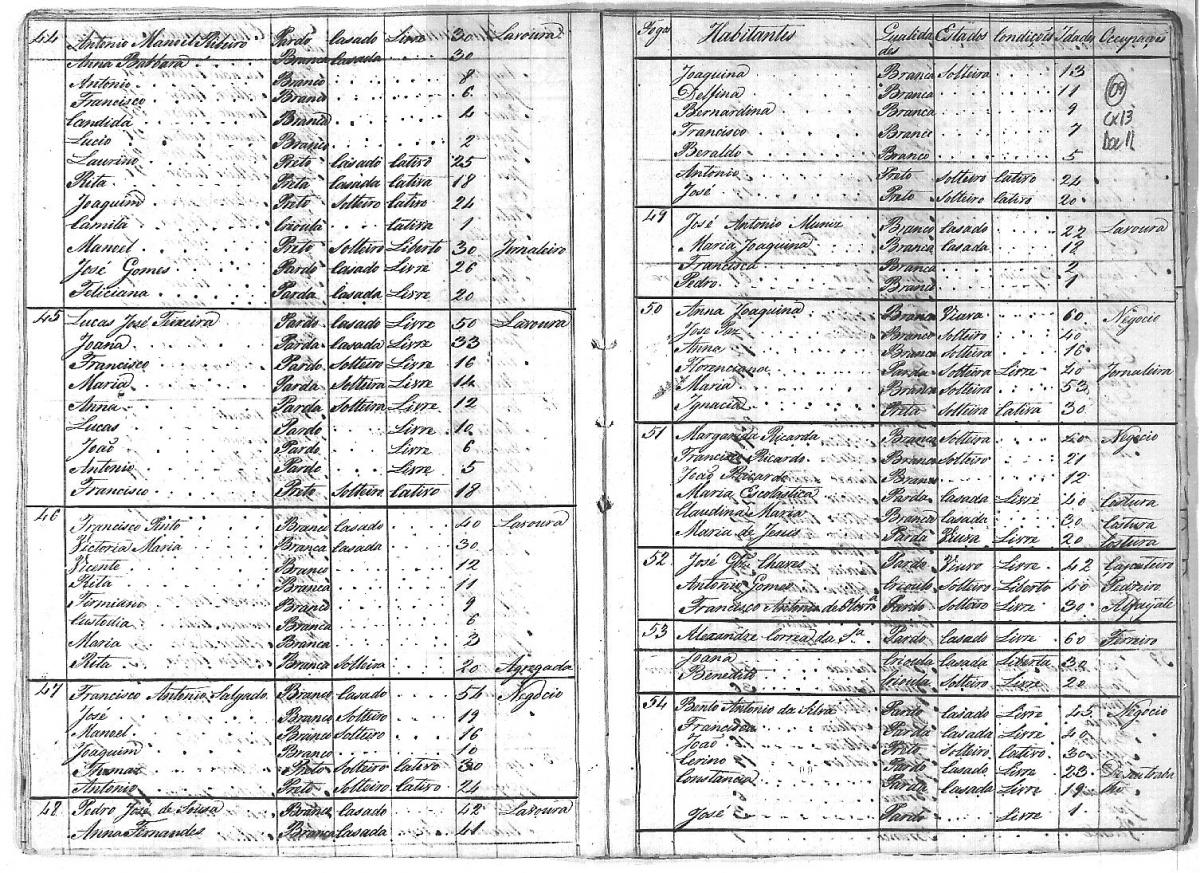 44 Antonio Manoel Ribeiro Pardo Casado Livre 30 Lavoura
Anna Barbara Branca Casada 30
Antonio Branco 8
Francisco Branco 6
Candida Branca 4
Lucio Branco 2
Laurino Preto Casado Cativo 25
Rita Preta Casada Cativa 18
Joaquim Preto Solteiro Cativo 24
Camila Crioula Cativa 1
Manoel Preto Solteiro Liberto 30 Jornaleiro
José Gomes Pardo Casado Livre 26
Feliciana Parda Casada Livre 20
45 Lucas José Teixeira Pardo Casado Livre 50 Lavoura
Joana Parda Casada Livre 33
Francisco Pardo Solteiro Livre 16
Maria Parda Solteira Livre 14
Anna Parda Solteira Livre 12
Lucas Pardo Livre 10
João Pardo Livre 6
Antonio Pardo Livre 5
Francisco Preto Solteiro Cativo 18
46 Francisco Pinto Branco Casado 40 Lavoura
Victoria Maria Branca Casada 30
Vicente Branco 12
Rita Branca 11
Firmiano Branco 9
Custodia Branca 6
Maria Branca
Rita Branca Solteira 20 Agregada
47 Francisco Antonio Salgado Branco Casado 54 Negocio
José Branco Solteiro 19
Manoel Branco Solteiro 16
Joaquim Branco 10
Thomaz Preto Solteiro Cativo 30
Antonio Preto Solteiro Cativo 24
48 Pedro José de Sousa Branco Casado 42 Lavoura
Anna Fernandes Branca Casada 41
Fogos Habitantes Qualida Estados Condições Idades Occupações
des
Joaquina Branca Solteira 13
Delfina Branca 11
Bernardina Branca 9
Francisco Branco 7
Beraldo Branco 5
Antonio Preto Solteiro Cativo 24
José Preto Solteiro Cativo 20
09
CX13
Doc 11
49 José Antonio Muniz Branco Casado 22 Lavoura
Maria Joaquina Branca Casada 12
Francisca Branca 2
Pedro Branco 1
50 Anna Joaquina Branca Viuva 60 Negocio
José Paz Branco Solteiro 40
Anna Branca Solteira 16
Florenciana Parda Solteira Livre 40 Jornaleira
Maria Branca Solteira 53
Ignacia Preta Solteira Cativa 30
51 Margarida Ricarda Branca Solteira 40 Negocio
Francisco Ricardo Branco Solteiro 21
João Ricardo Branco 12
Maria Escolastica Parda Casada Livre 40 Costura
Claudina Maria Branca Casada 30 Costura
Maria de Jesus Parda Viuva Livre 20 Costura
52 José Chaves Pardo Viuvo Livre 42 Carpinteiro
Antonio Gomes Crioulo Solteiro Liberto 40 Pedreiro
Francisco Antonio de Pardo Solteiro Livre 30 Alfaiate
53 Alexandre Correa da Sª Pardo Casado Livre 60 Ferreiro
Joana Crioula Casada Liberta 30
Benedito Crioulo Solteiro Livre 20
54 Bento Antonio da Silva Pardo Casado Livre 45 Negocio
Francisca Parda Casada Livre 40
João Preto Solteiro Cativo 30
Cerino Pardo Casado Livre 23
Constancia Parda Casada Livre 19
José Pardo Livre 1